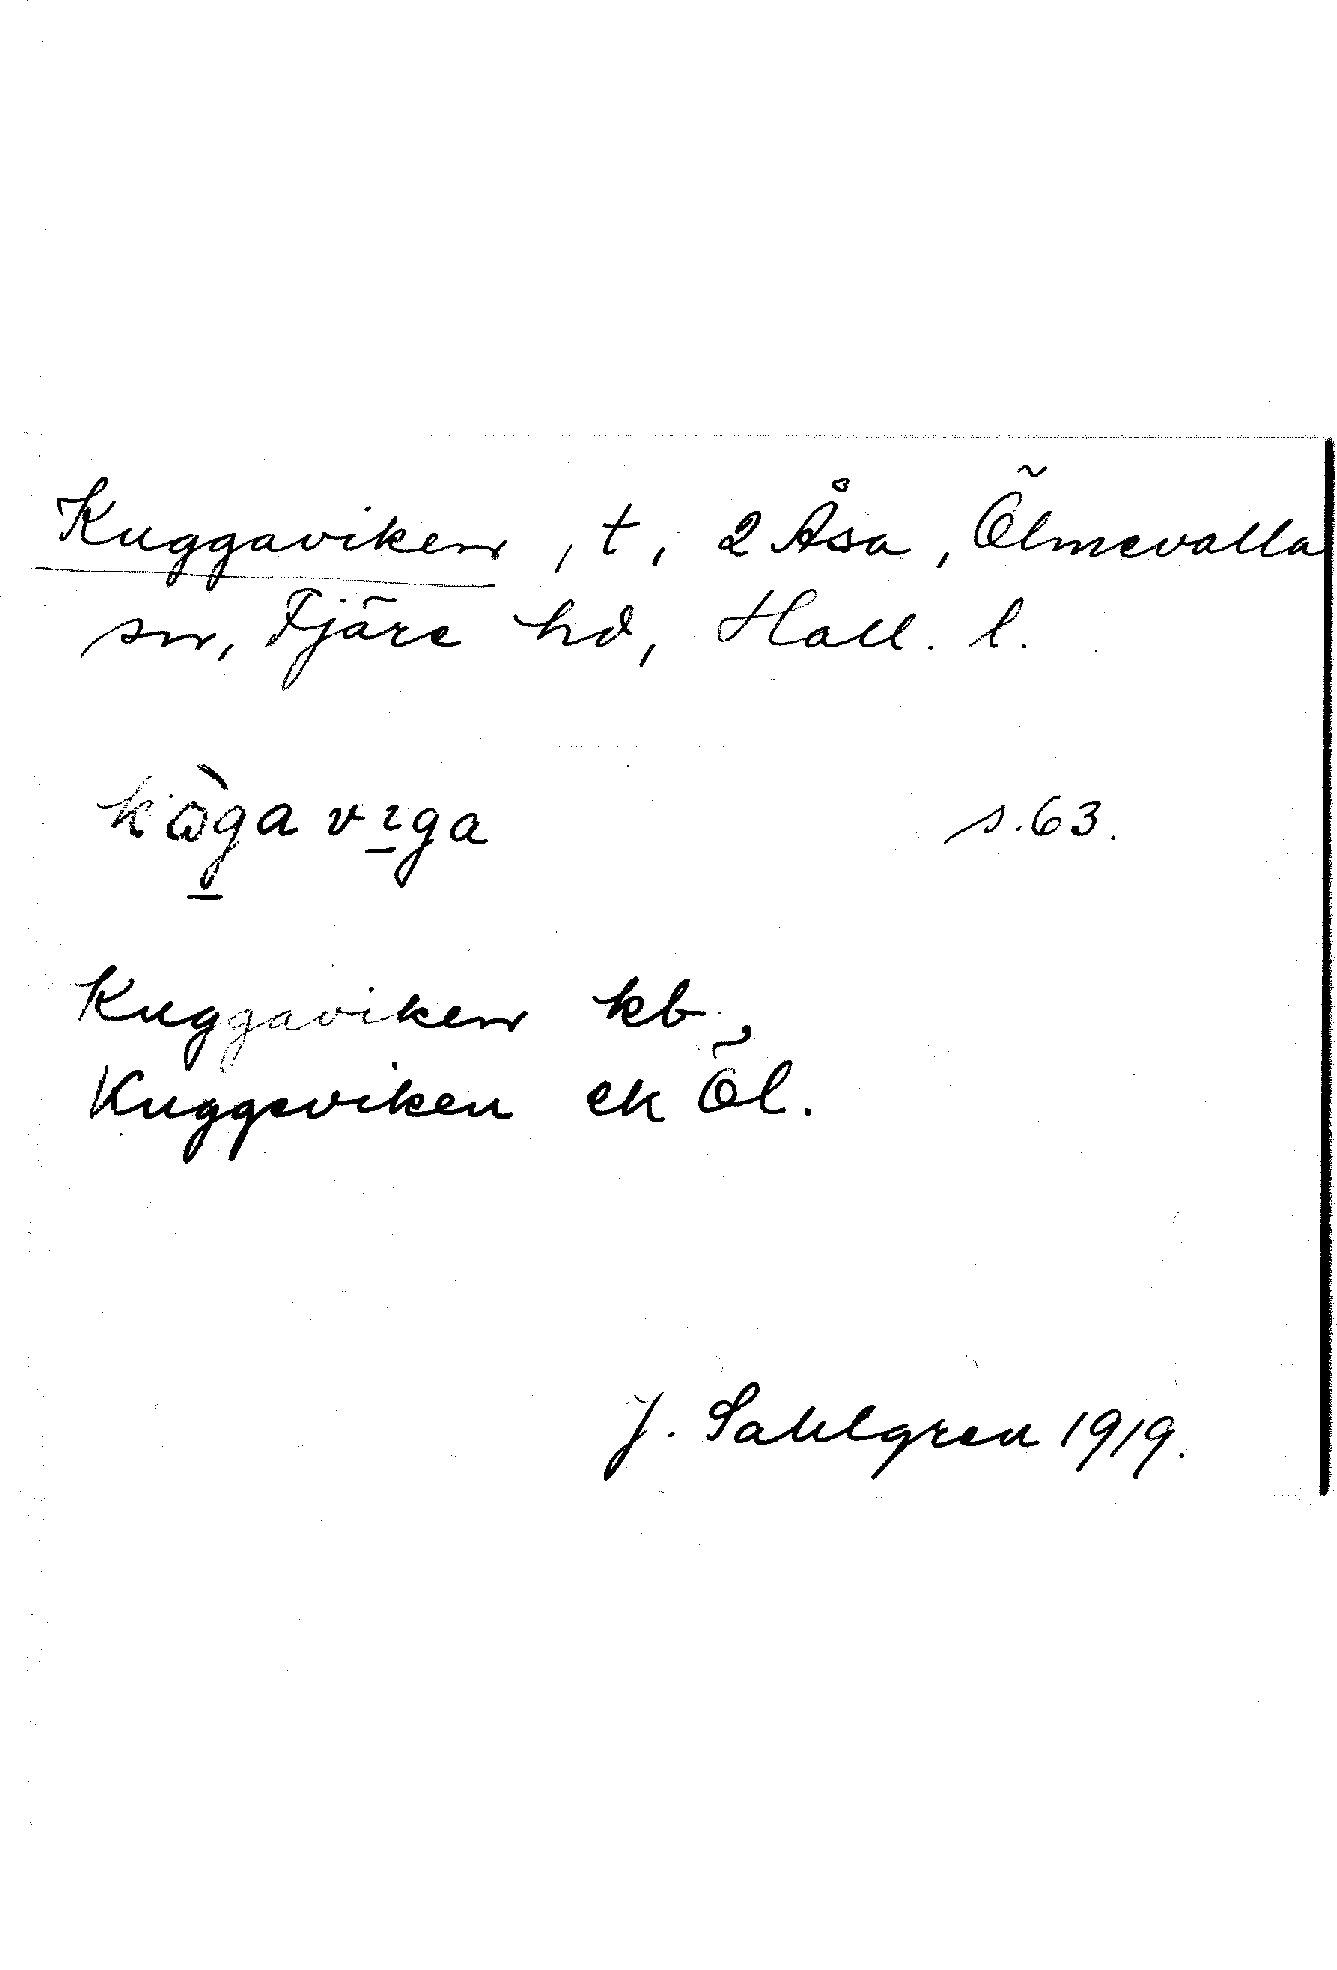 Kuggaviken, t, 2 Åsa, Ölmevalla
sn, Fjäre hd, Hall. l.
kòga vıga s. 63.
Kuggaviken kb
Kuggeviken ek Öl.
J. Sahlgren 1919.